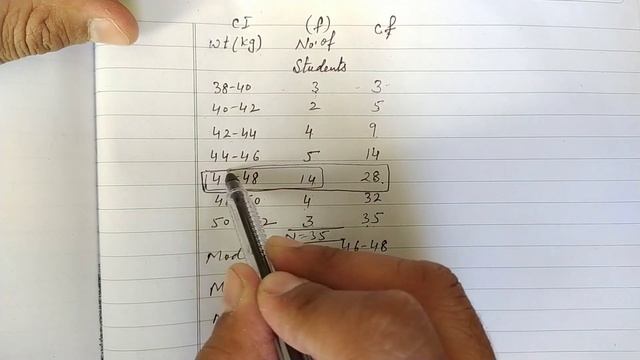 CI (f) cf
wt (kg) No. of
Students
38-40 3 3
40-42 2 5
42-44 4 9
44-46 5 14
4 -48 14 28
4 0 4 32
50 2 3 35
N=35
Mod 46-48
M